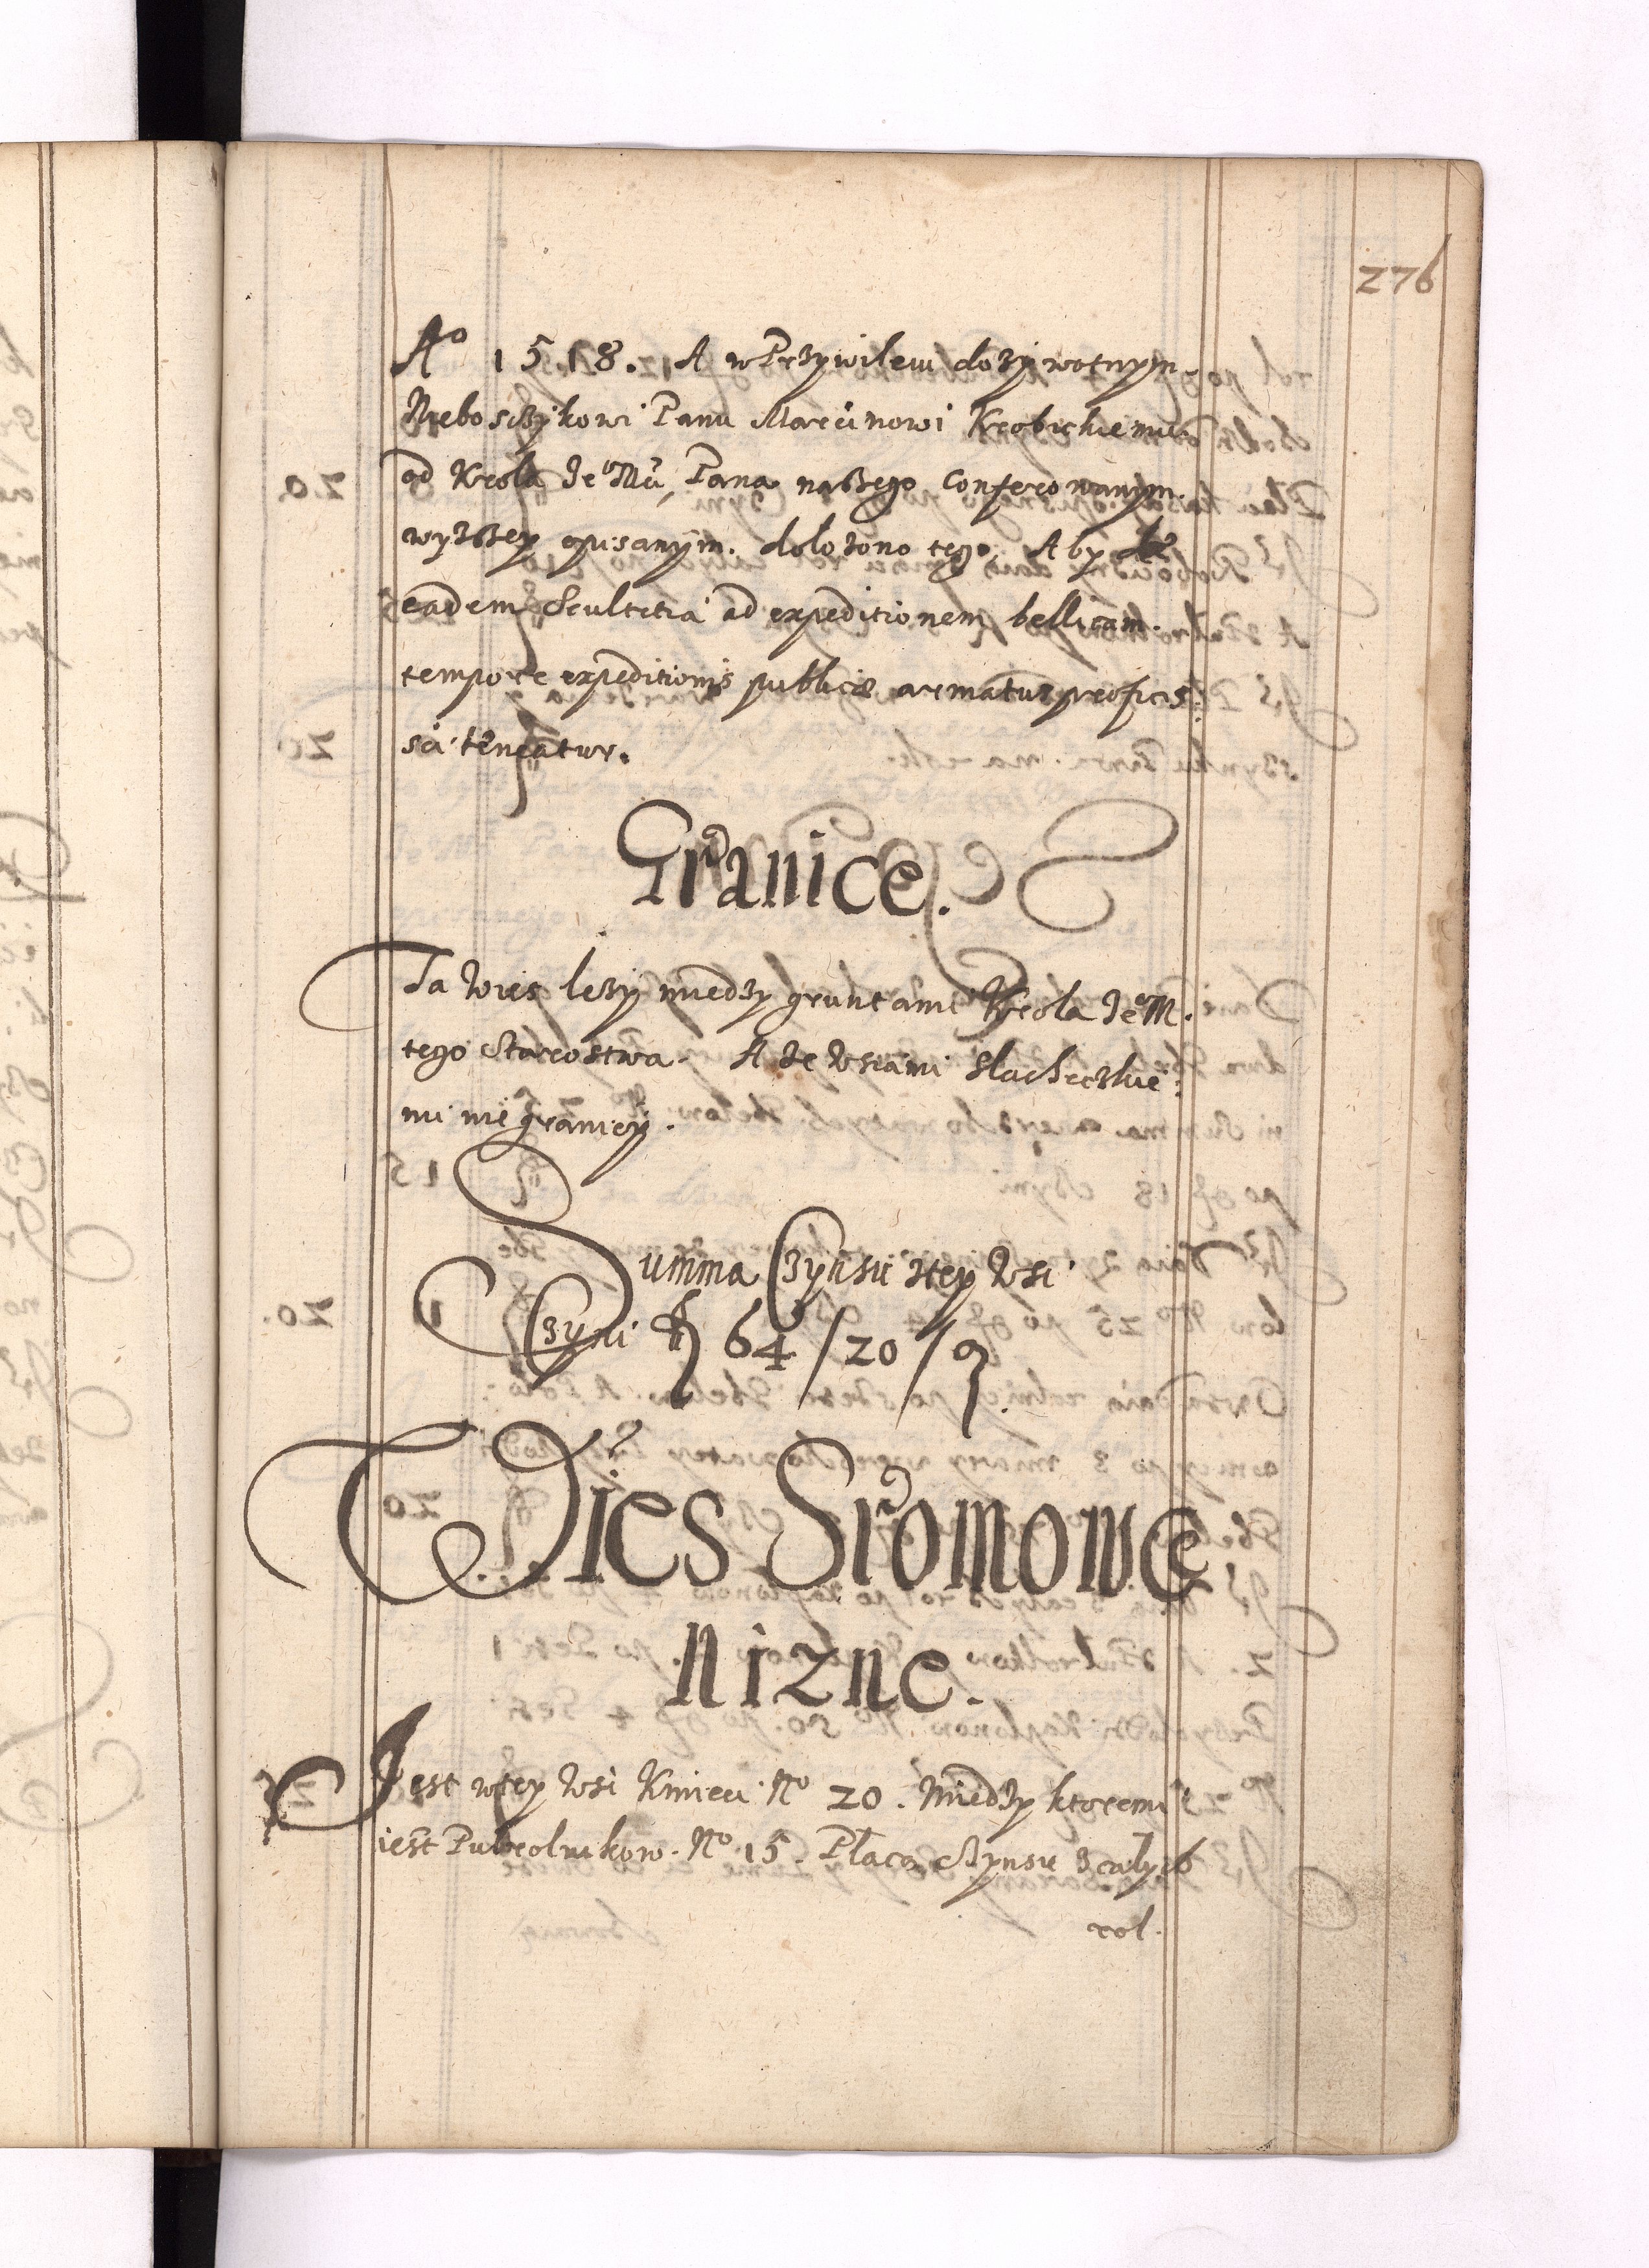 276
Aº 1518. A w Przywileiu dozywotnym
Nieboszczykowi Panu Marcinowi Krobickiemu
od Krola Je⁰Mci Pana naszego conferowanym
wyzszey opisanym. dolozono tego. Aby
eadem Scultetia ad expeditionem bellicam
tempore expeditionis publicæ armatus profics:
sci teneatur.
Granice.
Ta Wies lezy miedzy gruntami Krola Je⁰M.
tego Starostwa. A ze Wsiami Slacheckie:
mi nie graniczy.
Summa Czynsu z tey Wsi
Czyni fl 64/20/9.
Wies Sromowce
Nizne.
Jest w tey Wsi Kmieci Nº 20. Miedzy ktoremi
iest Pulrolnikow. Nº 15. Płacą Czynsu z calych
rol.